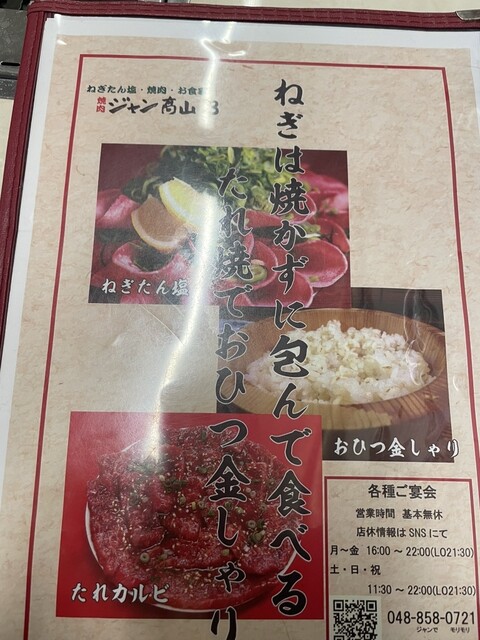 ねぎたん塩・焼肉・お食事
焼肉 ジャン高山
ねぎは焼かずに包んで食べる
たれ焼でおひつ金しゃり
ねぎたん塩
おひつ金しゃり
たれカルビ
各種ご宴会
営業時間 基本無休
店休情報はSNSにて
月〜金 16:00 〜 22:00(LO21:30)
土・日・祝
11:30 〜 22:00(LO21:30)
048-858-0721
ジャンで モリモリ